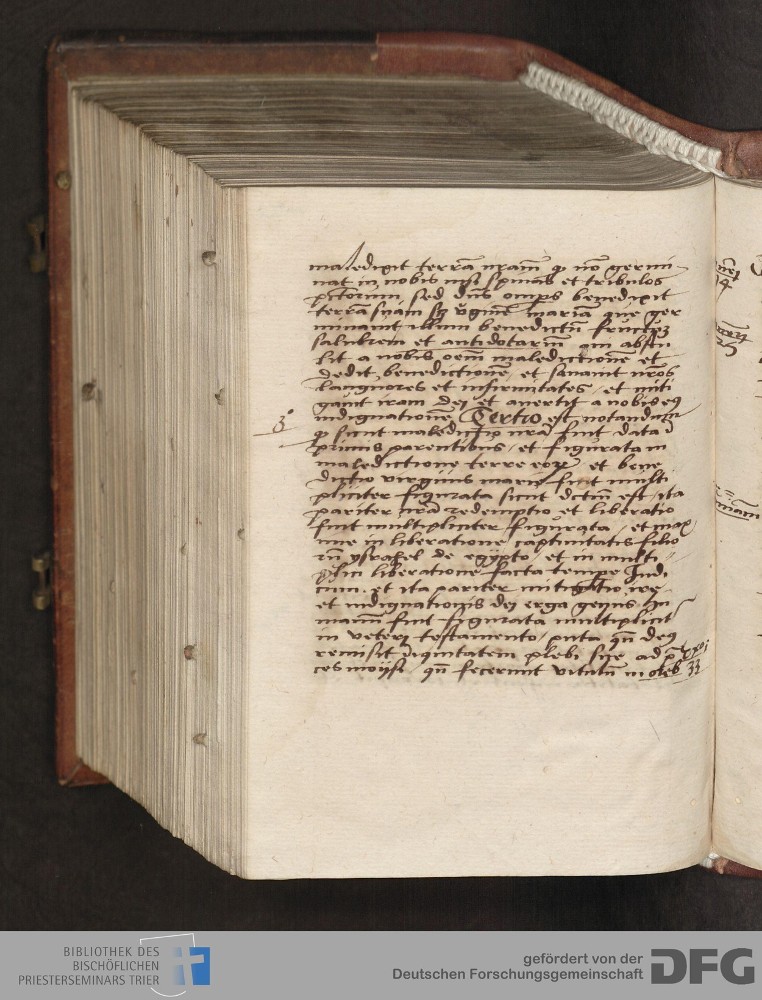 maledixit terrā nrām q̨ nō germi-
nat in nobis nisi spinas et tribulos
pctorum, sed dns omps benedixit
terrā suam sz virginē mariā que ger
minauit illum benedictū fructū
salubrem et antidotarium qui abstu
lit a nobis oēm maledictionē et
dedit benedictionē, et sanauit nros
languores et infirmitates, et miti
gauit iram dei et auertit a nobis ei9
indignationē Tertio est notandum
3°
q̨ sicut maledictio nrā fuit data ī
primis parentibus, et figurata in
maledictione terre eorum, et bene
dictio virginis marie fuit multi
pliciter figurata sicut dictū est, ita
pariter nrā redemptio et liberatio
fuit multipliciter figurata, et max
ime in liberatione captiuitatis filio
rū ysrahel de egypto, et in multi
plici liberatione facta tempe Judi
cum. et ita pariter mitigatio ire
et indignationis dei erga genus hu
manū fuit figurata multiplicit
in veteri testamento, puta qn̄ de9
remisit iniquitatem plebi sue ad p̄
ces moysi, qn̄ fecerunt vitulū in oreb
33
BIBLIOTHEK DES
BISCHÖFLICHEN
PRIESTERSEMINARS TRIER
gefördert von der
Deutschen Forschungsgemeinschaft
DFG